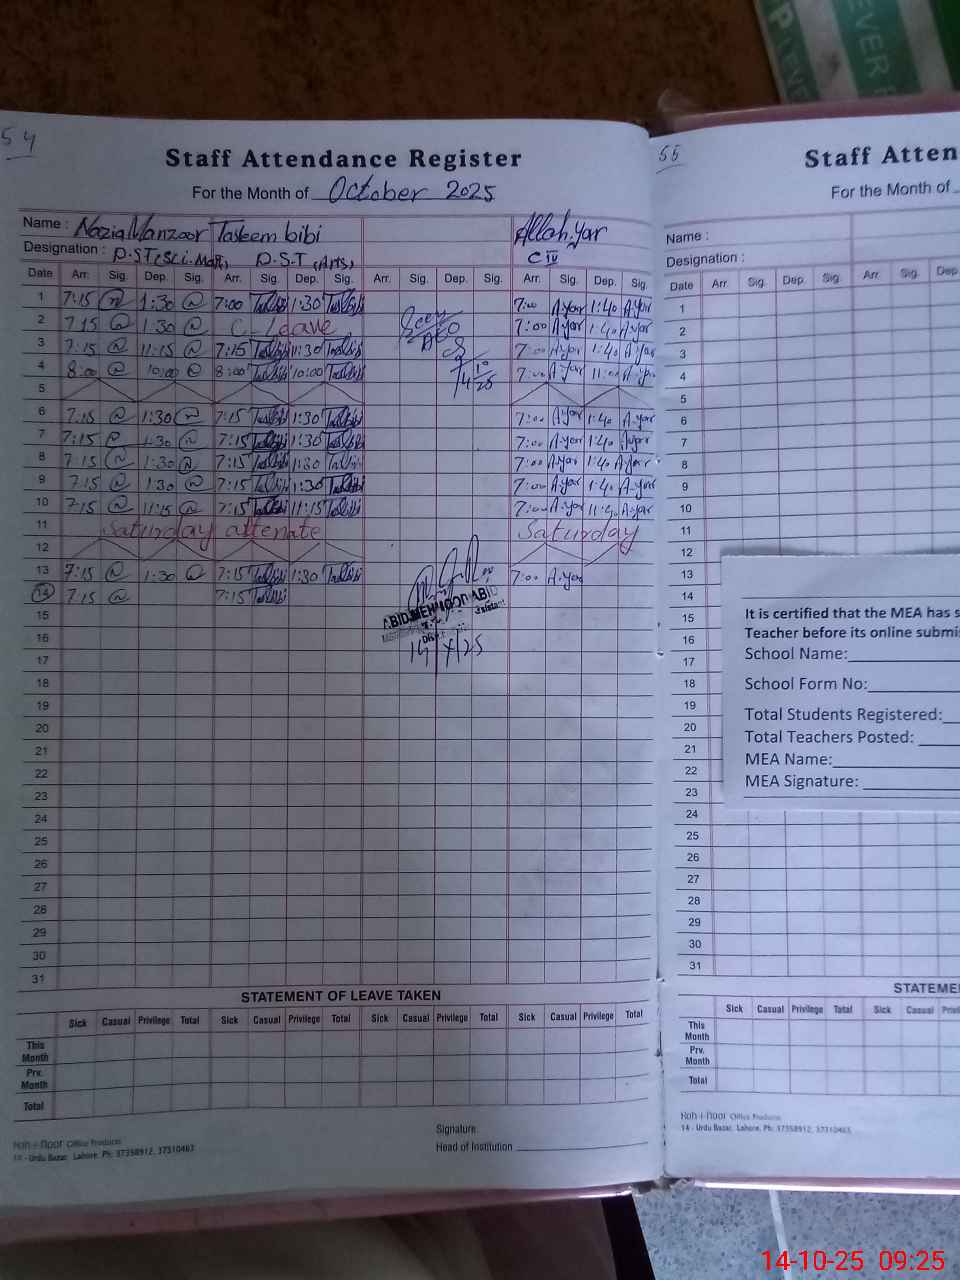 P
LEVE
EVER F
54
Staff Attendance Register
For the Month of October 2025
Name : Nazia Manzoor Tasleem bibi Allah.yar
Designation : P.S.T (Sci.Mat) P.S.T (Arts) C IV
Date Arr. Sig. Dep. Sig. Arr. Sig. Dep. Sig. Arr. Sig. Dep. Sig. Arr. Sig. Dep. Sig.
1 7:15 1:30 7:00 Tasbibi 1:30 Tasbibi 7:00 A.yar 1:40 A.yar
2 7:15 1:30 C-Leave 7:00 A.yar 1:40 A.yar
3 7:15 11:15 7:15 Tasbibi 11:30 Tasbibi 7:00 A.yar 1:40 A.yar
4 8:00 10:00 8:00 Tasbibi 10:00 Tasbibi 7:00 A.yar 11:00 A.yar
5
6 7:15 1:30 7:15 Tasbibi 1:30 Tasbibi 7:00 A.yar 1:40 A.yar
7 7:15 1:30 7:15 Tasbibi 1:30 Tasbibi 7:00 A.yar 1:40 A.yar
8 7:15 1:30 7:15 Tasbibi 1:30 Tasbibi 7:00 A.yar 1:40 A.yar
9 7:15 1:30 7:15 Tasbibi 1:30 Tasbibi 7:00 A.yar 1:40 A.yar
10 7:15 11:15 7:15 Tasbibi 11:15 Tasbibi 7:00 A.yar 11:40 A.yar
11 Saturday altenate Saturday
12
13 7:15 1:30 7:15 Tasbibi 1:30 Tasbibi 7:00 A.yar
14 7:15 7:15 Tasbibi
ABID MEHMOOD ABID
15
16
17
18
19
20
21
22
23
24
25
26
27
28
29
30
31
STATEMENT OF LEAVE TAKEN
Sick Casual Privilege Total Sick Casual Privilege Total Sick Casual Privilege Total Sick Casual Privilege Total
This Month
Prv. Month
Total
Signature
Head of Institution
Koh-i-noor Office Products
14 - Urdu Bazar, Lahore. Ph: 37358912, 37310463
55
Staff Atten
For the Month of
Name :
Designation :
Date Arr. Sig. Dep. Sig. Arr. Sig. Dep
1
2
3
4
5
6
7
8
9
10
11
12
13
14
15
16
17
18
19
20
21
22
23
24
25
26
27
28
29
30
31
It is certified that the MEA has s
Teacher before its online submi
School Name:
School Form No:
Total Students Registered:
Total Teachers Posted:
MEA Name:
MEA Signature:
STATEME
Sick Casual Privilege Total Sick Casual Privilege
This Month
Prv. Month
Total
Koh-i-noor Office Products
14 - Urdu Bazar, Lahore. Ph: 37358912, 37310463
14-10-25 09:25